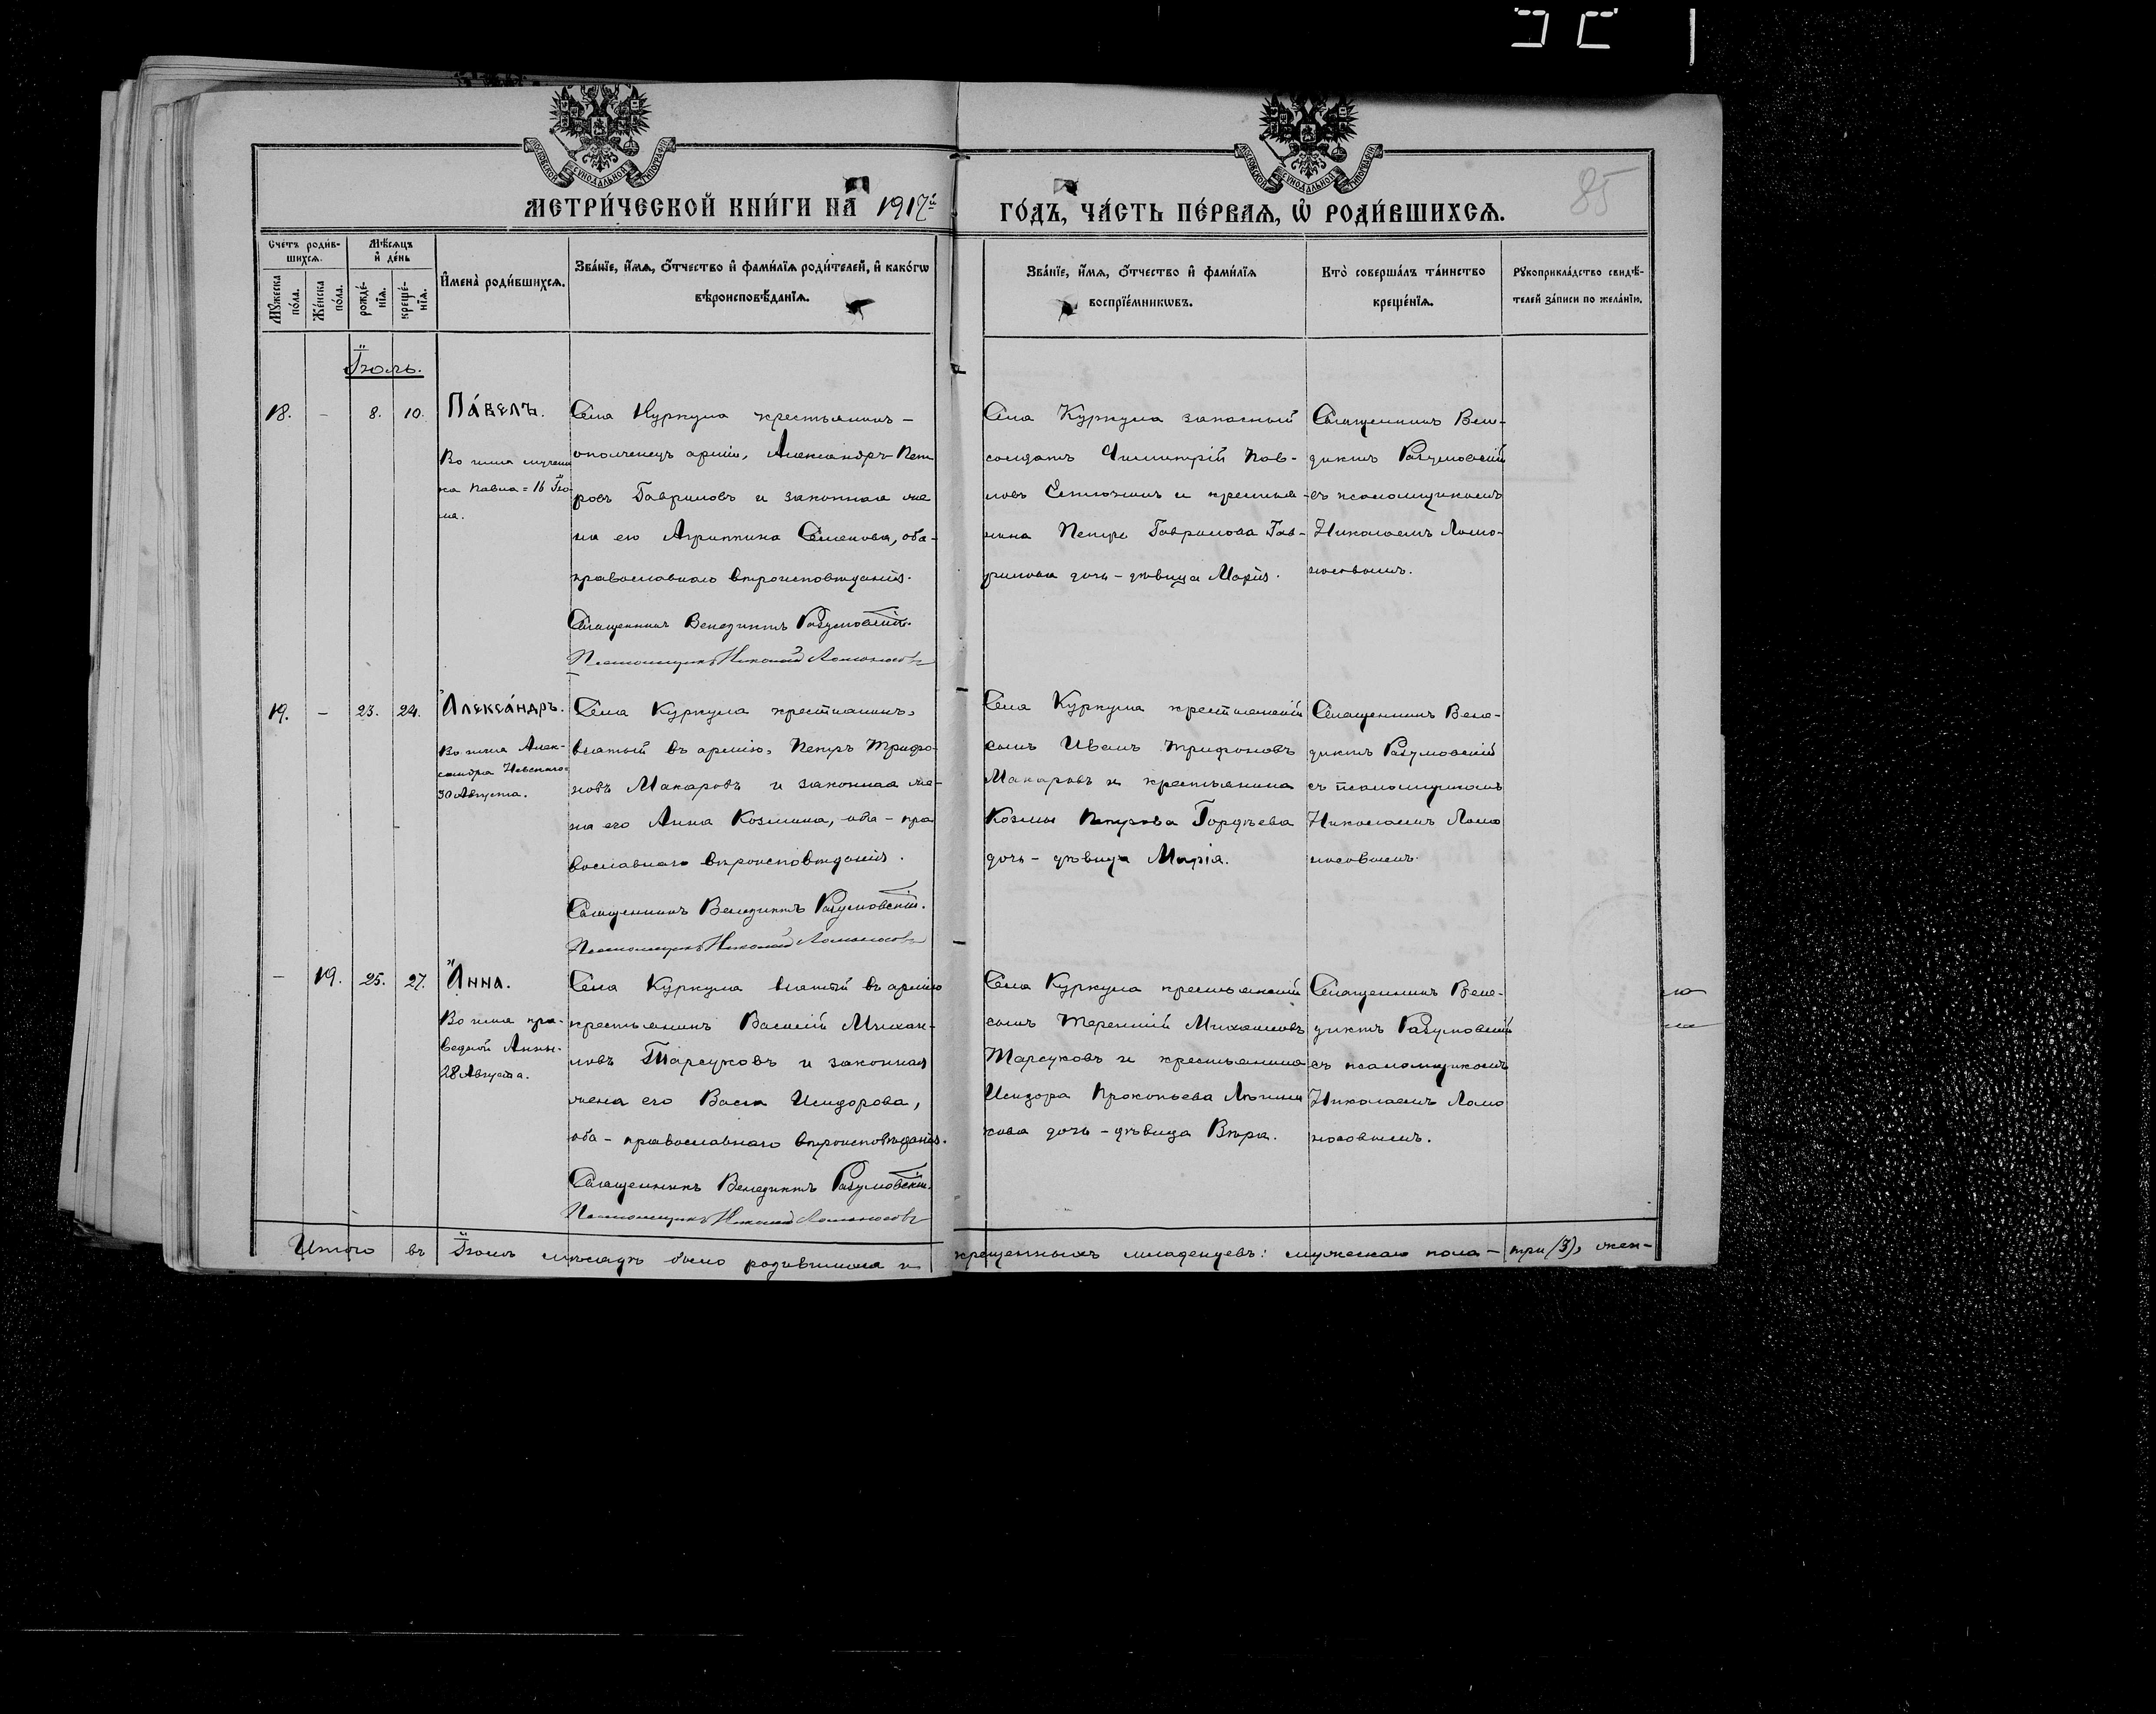 85
МЕТРИ́ЧЕСКОЙ КНИ́ГИ НА 1917й
ГО́ДЪ, ЧА́СТЬ ПЕ́РВАЯ, Ѿ РОДИ́ВШИХСЯ.
Сче́тъ роди́в-
шихся.
Мѣ́сяцъ
и҆ де́нь
Мꙋ́жеска по́ла.
Же́нска по́ла.
рожде́-
нїя.
креще́-
нїя.
И҆мена̀ роди́вшихся.
Зва́нїе, и҆́мя, ѻ҆́тчество и҆ фами́лїя роди́телей, и҆ како́гѡ
вѣроисповѣ́данїя.
Зва́нїе, и҆́мя, ѻ҆́тчество и҆ фами́лїя
воспрїе́мникѡвъ.
Кто̀ соверша́лъ та́инство
креще́нїя.
Рꙋкоприкла́дство свидѣ́-
телей за́писи по жела́нїю.
Іюль.
18. - 8. 10. Па́велъ.
Во имя мучени
ка Павла = 16 Ію
ля.
Села Куркула крестьянинъ -
ополченецъ арміи, Александръ Пет
ровъ Гавриловъ и законная же
на его Агриппина Семенова, оба -
православнаго вѣроисповѣданія.
Священникъ Венедиктъ Разумовскій.
Псаломщикъ Николай Ломоносовъ
Села Куркула запасный
солдатъ Димитрій Пав-
ловъ и крестья-
нина Петра Гаврилова Гав-
рилова дочь - дѣвица Марія.
Священникъ Вене-
диктъ Разумовскій
съ псаломщикомъ
Николаемъ Ломо-
носовымъ.
19. - 23. 24. Алекса́ндръ.
Во имя Алек-
сандра Невскаго =
30 Августа.
Села Куркула крестьянинъ,
взятый въ армію, Петръ Трифо-
новъ Макаровъ и законная же-
на его Анна Козмина, оба - пра
вославнаго вѣроисповѣданія.
Священникъ Венедиктъ Разумовскій.
Псаломщикъ Николай Ломоносовъ
Села Куркула крестьянскій
сынъ Иванъ Трифоновъ
Макаровъ и крестьянина
Козмы Петрова Гордѣева
дочь - дѣвица Марія.
Священникъ Вене-
диктъ Разумовскій
съ псаломщикомъ
Николаемъ Ломо
носовымъ.
- 19. 25. 27. Анна.
Во имя пра-
ведной Анны.
28 Августа.
Села Куркула взятый въ армію
крестьянинъ Василій Михаи-
ловъ Тарсуковъ и законная
жена его Васса Исидорова,
оба - православнаго вѣроисповѣданія.
Священникъ Венедиктъ Разумовскій.
Псаломщикъ Николай Ломоносовъ
Села Куркула крестьянскій
сынъ Терентій Михаиловъ
Тарсуковъ и крестьянина
Исидора Прокопьева
дочь - дѣвица Вѣра.
Священникъ Вене-
диктъ Разумовскій
съ псаломщикомъ
Николаемъ Ломо
носовымъ.
Итого въ Іюлѣ мѣсяцѣ было родившихся и крещенныхъ младенцевъ: мужескаго пола - три (3), жен-